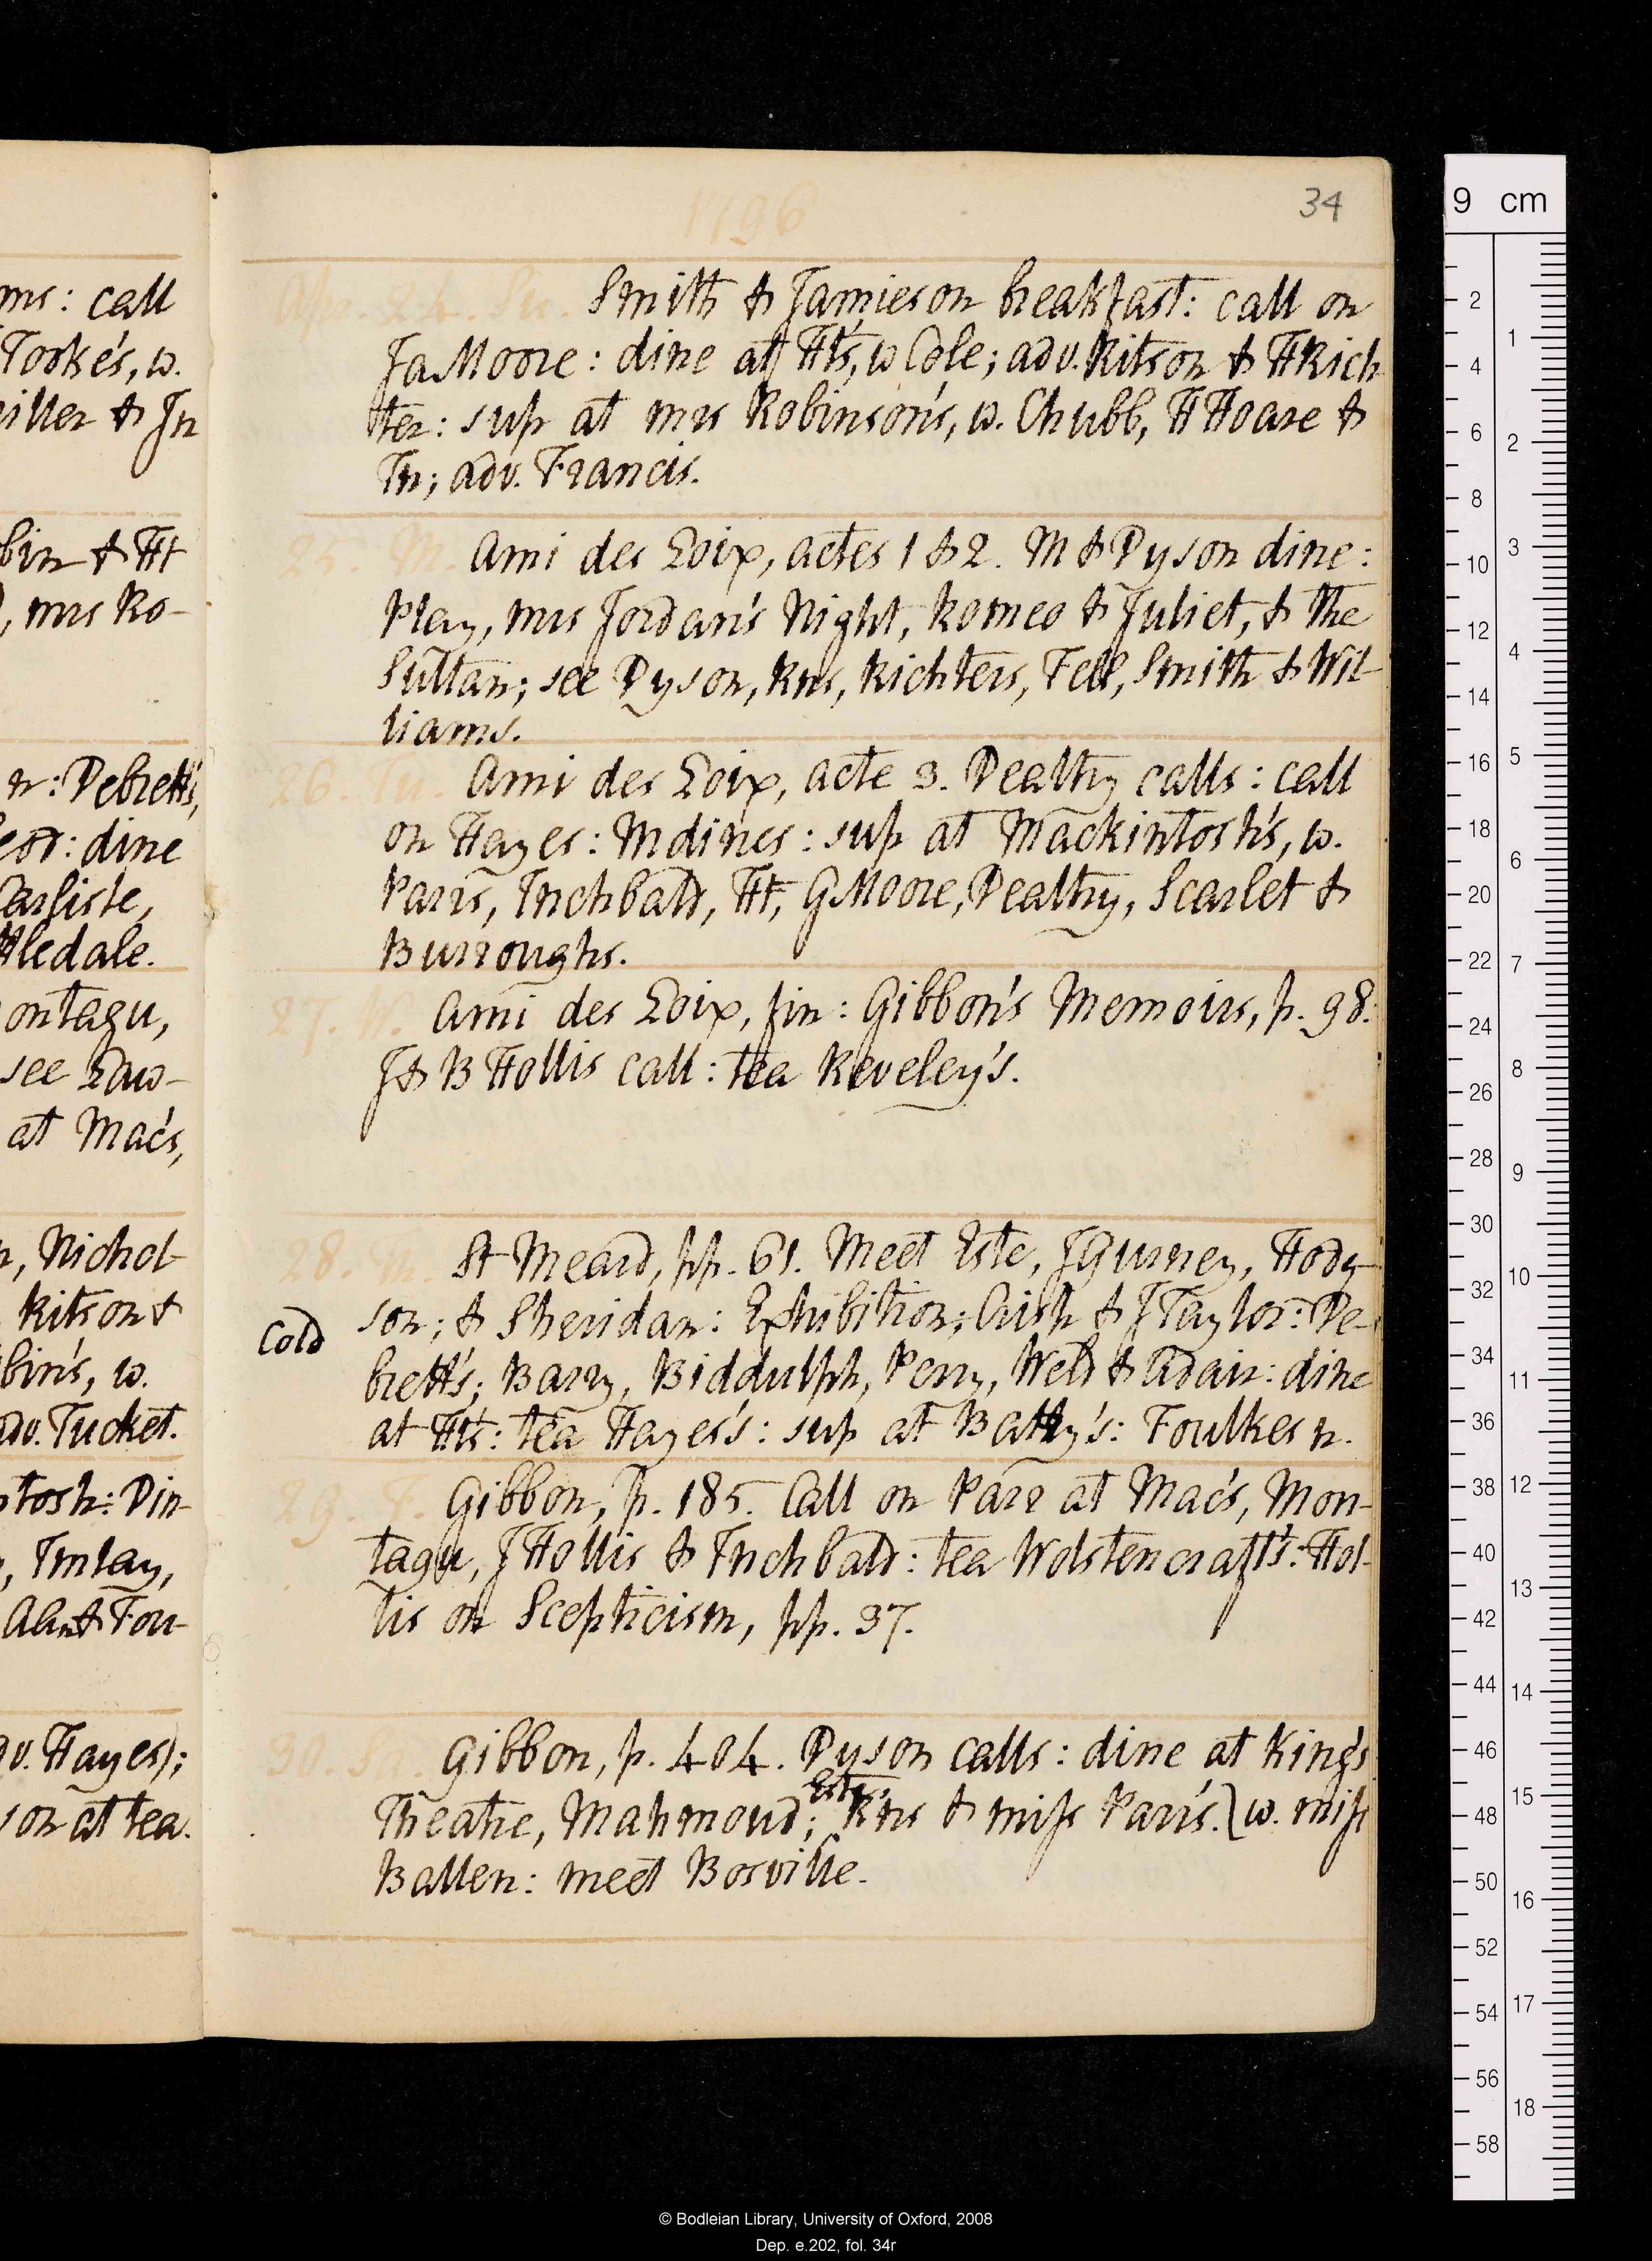 ms: call
Tooke's, w.
iller & Jn
bin & Ht
, mrs Ro-
n: Debrett's,
dine
Carlisle,
ledale.
ontagu,
see Law-
at Mac's,
n, Nichol-
Ritson &
bin's, w.
adv. Tucket.
tosh: Din-
, Imlay,
Aln & Fou-
v. Hayes);
son at tea.
1796
34
Apr. 24. Su. Smith & Jamieson breakfast: call on
Ja Moore: dine at Ht's, w Cole; adv. Ritson & H Rich
ter: sup at mrs Robinson's, w. Chubb, H Hoare &
Tn; adv. Francis.
25. M. Ami des Loix, actes 1 & 2. M & Dyson dine:
Play, mrs Jordan's Night, Romeo & Juliet, & The
Sultan; see Dyson, Kns, Richters, Fell, Smith & Wil-
liams.
26. Tu. Ami des Loix, acte 3. Dealtry calls: call
on Hayes: M dines: sup at Mackintosh's, w.
Parrs, Inchbald, Ht, G Moore, Dealtry, Scarlet &
Burroughs.
27. W. Ami des Loix, fin: Gibbon's Memoirs, p. 98:
J & B Hollis call: tea Reveley's.
28. Th. St Meard, pp. 61. Meet Este, J Gurney, Hodg-
son; & Sheridan: Exhibition; Crish & J Taylor: De-
Cold
brett's; Barry, Biddulph, Perry, Weld & Adair: dine
at Ht's: tea Hayes's: sup at Batty's: Foulkes n.
29. F. Gibbon, p. 185. Call on Parr at Mac's, Mon-
tagu, J Hollis & Inchbald: tea Wolstencraft's: Hol-
lis on Scepticism, pp. 37.
30. Sa. Gibbon, p. 404. Dyson calls: dine at King's
Este,
Theatre, Mahmoud; Kns & miss Parr's.} w. miss
Ballen: meet Bosville.
9 cm
2 4 6 8 10 12 14 16 18 20 22 24 26 28 30 32 34 36 38 40 42 44 46 48 50 52 54 56 58
1 2 3 4 5 6 7 8 9 10 11 12 13 14 15 16 17 18
© Bodleian Library, University of Oxford, 2008
Dep. e.202, fol. 34r